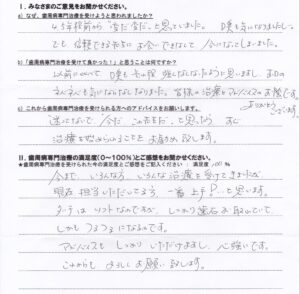 I. みなさまのご意見をお聞かせください。
a) なぜ、歯周病専門治療を受けようと思われましたか?
4.5年程前から"歯だ歯だ"と思っていました。口臭も気になりましたし。
でも、信頼できる先生にお会いできなくて今になってしまいました。
b)「歯周病専門治療を受けて良かった!」と思うことは何ですか?
以前にくらべて口臭も
ネバネバも気にならなくなりました。皆様の治療とアドバイスのお陰です。
ありがとうございます。
c) これから歯周病専門治療を受けられる方へのアドバイスをお願いします。
迷ってないで"今だ この先生だ"と思ったら すぐ
治療を始められることをお勧め致します。
II. 歯周病専門治療の満足度(0~100%)とご感想をお聞かせください。
★歯周病専門治療を受けられた今の満足度とご感想をご記入ください 満足度 100 %
今まで、いろんな方、いろんな治療を受けてきましたが
現在 担当いただいてる方、一番 上手!!と思います。
タッチはソフトなのですが、しっかり歯石も取れていて、
しかもつるつるになるんです。
アドバイスもしっかりいただけますし、心強いです。
これからも よろしくお願い致します。